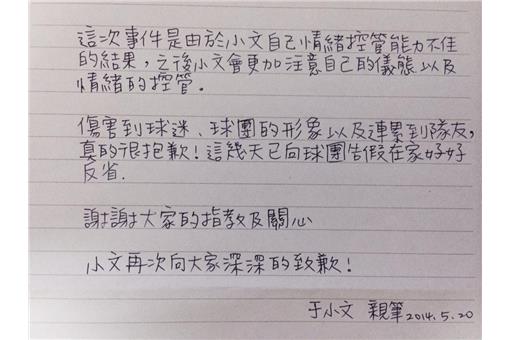 這次事件是由於小文自己情緒控管能力不佳
的結果，之後小文會更加注意自己的儀態以及
情緒的控管。
傷害到球迷、球團的形象以及連累到隊友，
真的很抱歉！這幾天已向球團告假在家好好
反省.
謝謝大家的指教及關心
小文再次向大家深深的致歉！
于小文 親筆 2014.5.20